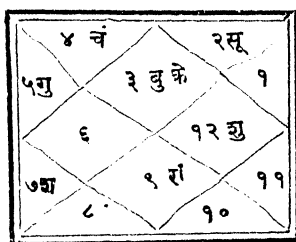 ४ चं २सू
५गु ३ बु के १
६ १२ शु
७श ९ रा ११
८ १०